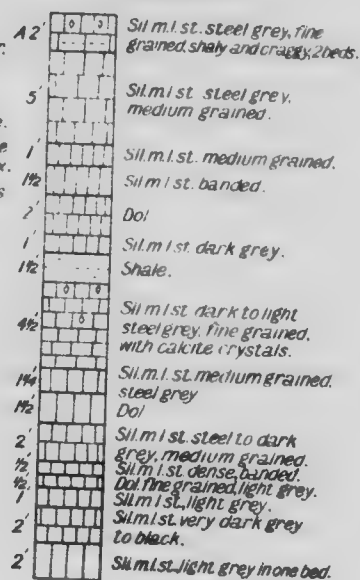 A 2' Sil.m.l.st. steel grey, fine
grained, shaly and craggy, 2 beds.
5' Sil.m.l.st. steel grey,
medium grained.
1' Sil.m.l.st. medium grained.
1½ Sil m l st. banded.
2' Dol
1' Sil.m.l.st. dark grey.
1½' Shale.
4½' Sil m l st dark to light
steel grey, fine grained,
with calcite crystals.
1¼' Sil.m.l.st. medium grained,
steel grey
1½' Dol
2' Sil.m l st. steel to dark
grey, medium grained.
½' Sil.m l st. dense, banded.
½' Dol. fine grained, light grey.
1' Sil.m l st., light grey.
2' Sil.m.l.st. very dark grey
to black.
2' Sil.m.l.st., light grey in one bed.